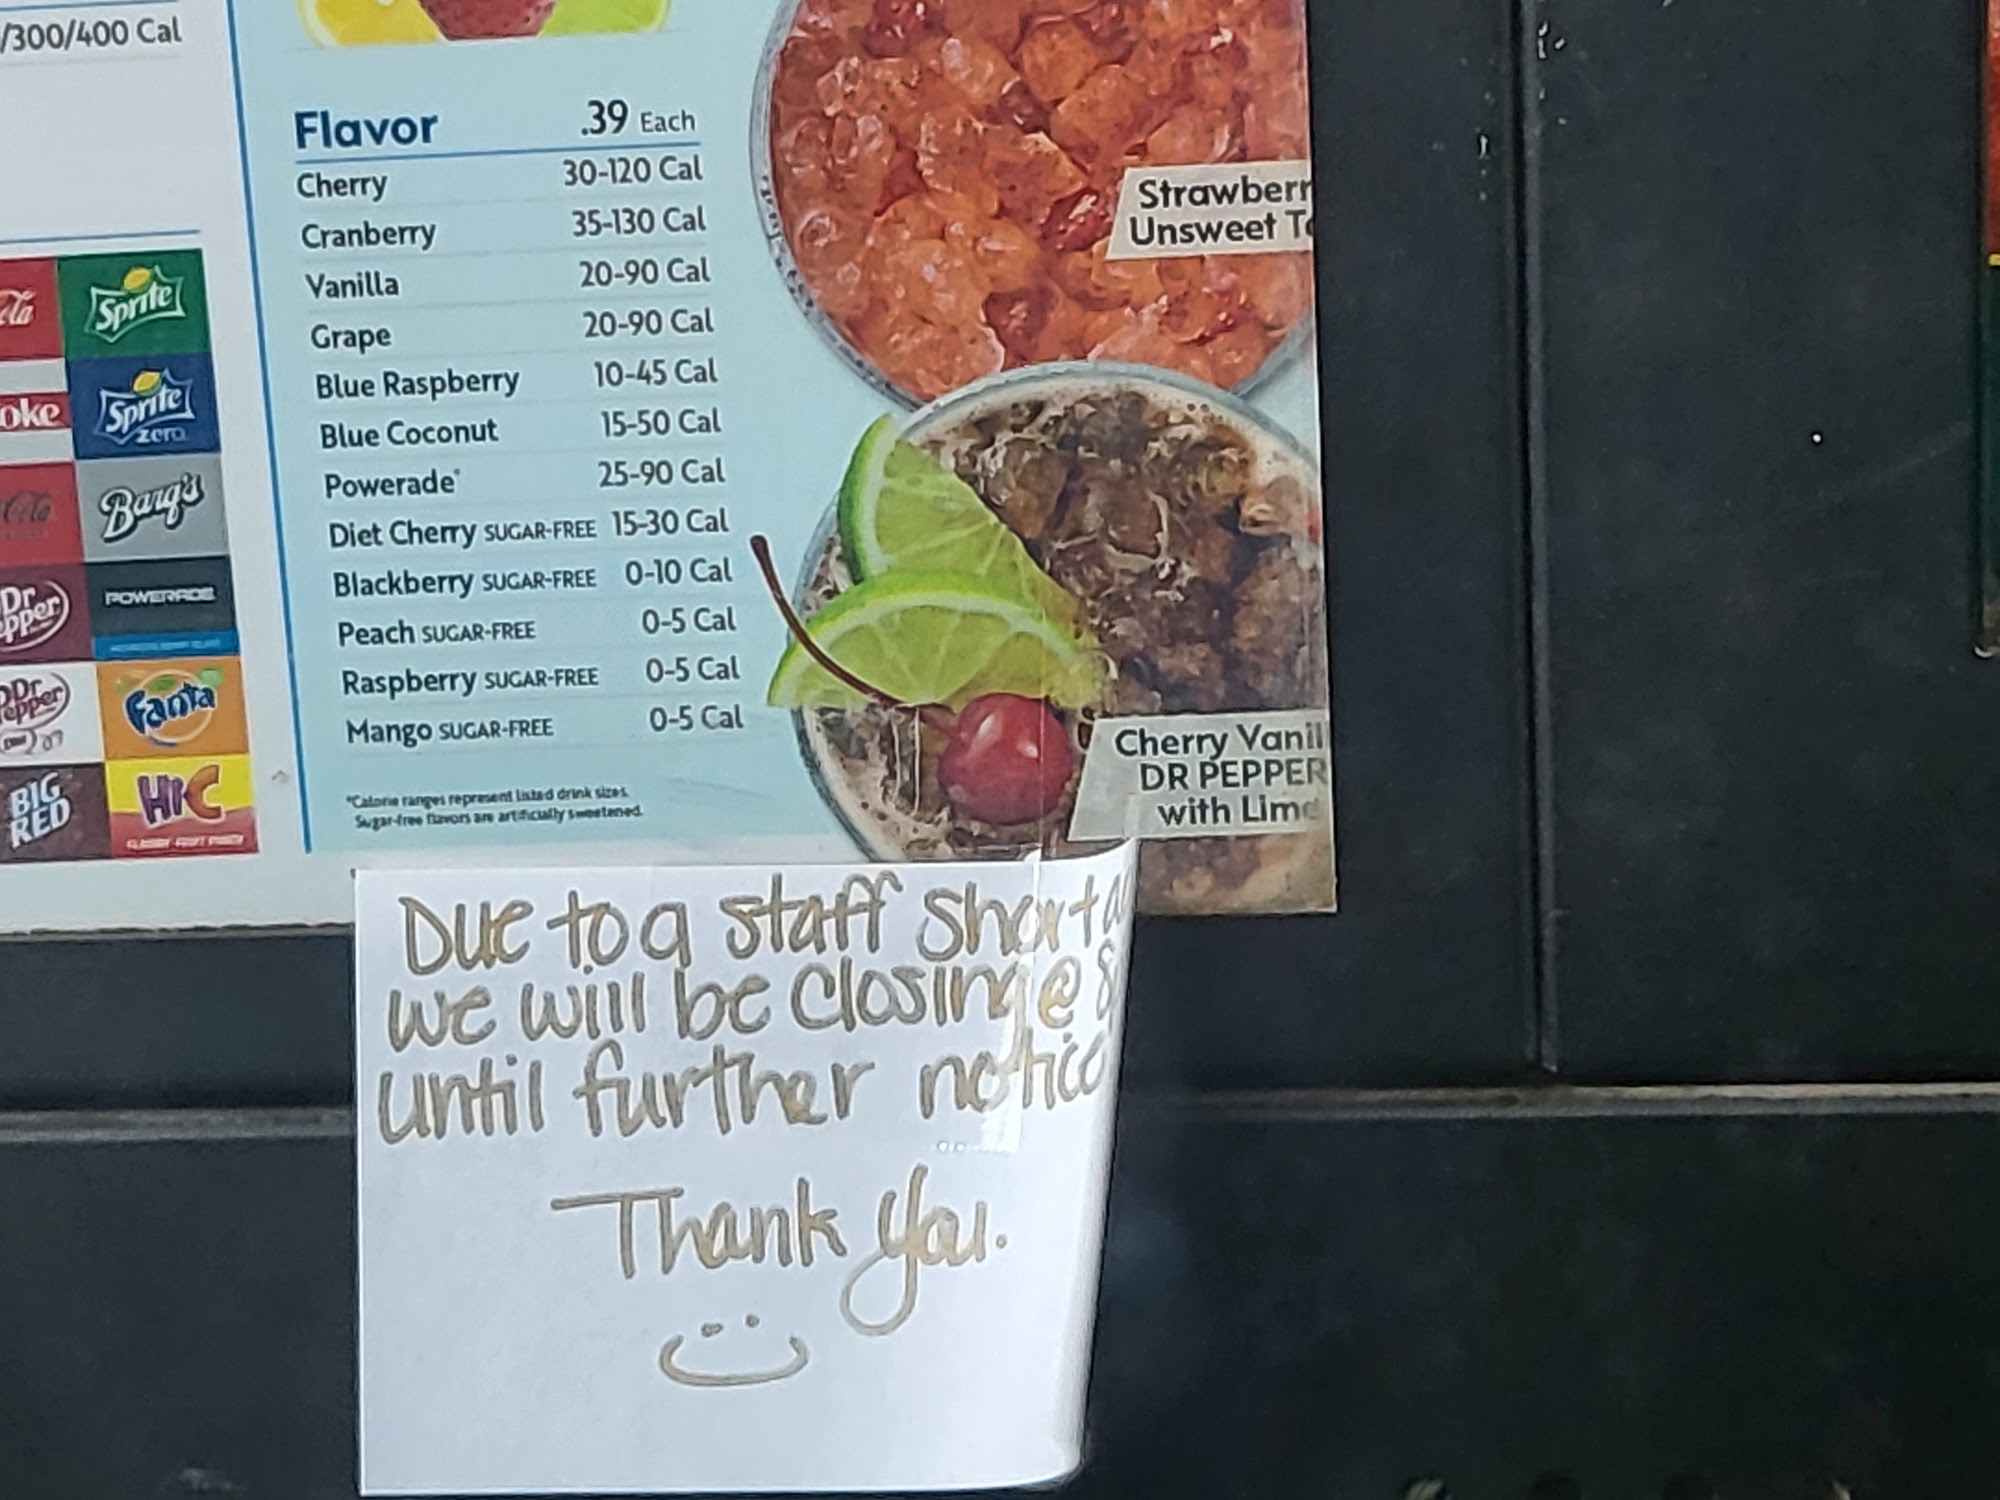 /300/400 Cal
Flavor .39 Each
Cherry 30-120 Cal
Cranberry 35-130 Cal
Vanilla 20-90 Cal
Grape 20-90 Cal
Blue Raspberry 10-45 Cal
Blue Coconut 15-50 Cal
Powerade* 25-90 Cal
Diet Cherry SUGAR-FREE 15-30 Cal
Blackberry SUGAR-FREE 0-10 Cal
Peach SUGAR-FREE 0-5 Cal
Raspberry SUGAR-FREE 0-5 Cal
Mango SUGAR-FREE 0-5 Cal
*Calorie ranges represent listed drink sizes.
Sugar-free flavors are artificially sweetened.
Strawberr
Unsweet T
Cherry Vanil
DR PEPPER
with Lim
Sprite
oke
Sprite
zero
Cola
Barq's
Dr
epper
POWERADE
Dr
epper
Fanta
BIG
RED
Hi-C
Due to a staff Shorta
we will be closing @ 8
until further notice
Thank you.